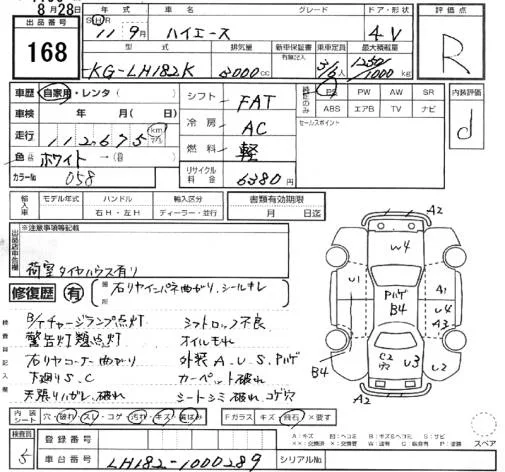 8月28日
出品番号 168
年式 車名 グレード ドア・形状 評価点
S H R 11 9月 ハイエース 4V R
型式 排気量 新車保証書 乗車定員 最大積載量
有無記入
KG-LH182K 3000cc 3/6人 1250/1000 kg
車歴 自家用・レンタ( ) シフト FAT PS PW AW SR 内装評価
車検 年 月( 日) 冷房 AC ABS エアB TV ナビ d
走行 112,675 km 燃料 軽 セールスポイント
色 ホワイト→( ) リサイクル料金 6380円
カラーNo 058
輸入車 モデル年式 ハンドル 輸入区分 書類有効期限
右H・左H ディーラー・並行 月 日迄
※注意事項等記載
荷室タイヤハウス有り
修復歴 有 箇所 右リヤインパネ曲がり、シールキレ
B/Tチャージランプ点灯 シートロック不良
警告灯類点灯 オイルもれ
右リヤコーナー曲がり 外装A.U.S.Pハゲ
下廻りS.C カーペット破れ
天張りハガレ、破れ シートシミ破れ、コゲ穴
A2
W4
U1 Pハゲ B4 A1 U4 A3
B4 C2穴 U3 U2
A2
内装シート 穴・破れ・スレ・コゲ・汚れ・キズ・黄ばみ Fガラス キズ・飛石・×要す スペア
検査員 5 登録番号
車台番号 LH182-1000289 シリアルNo